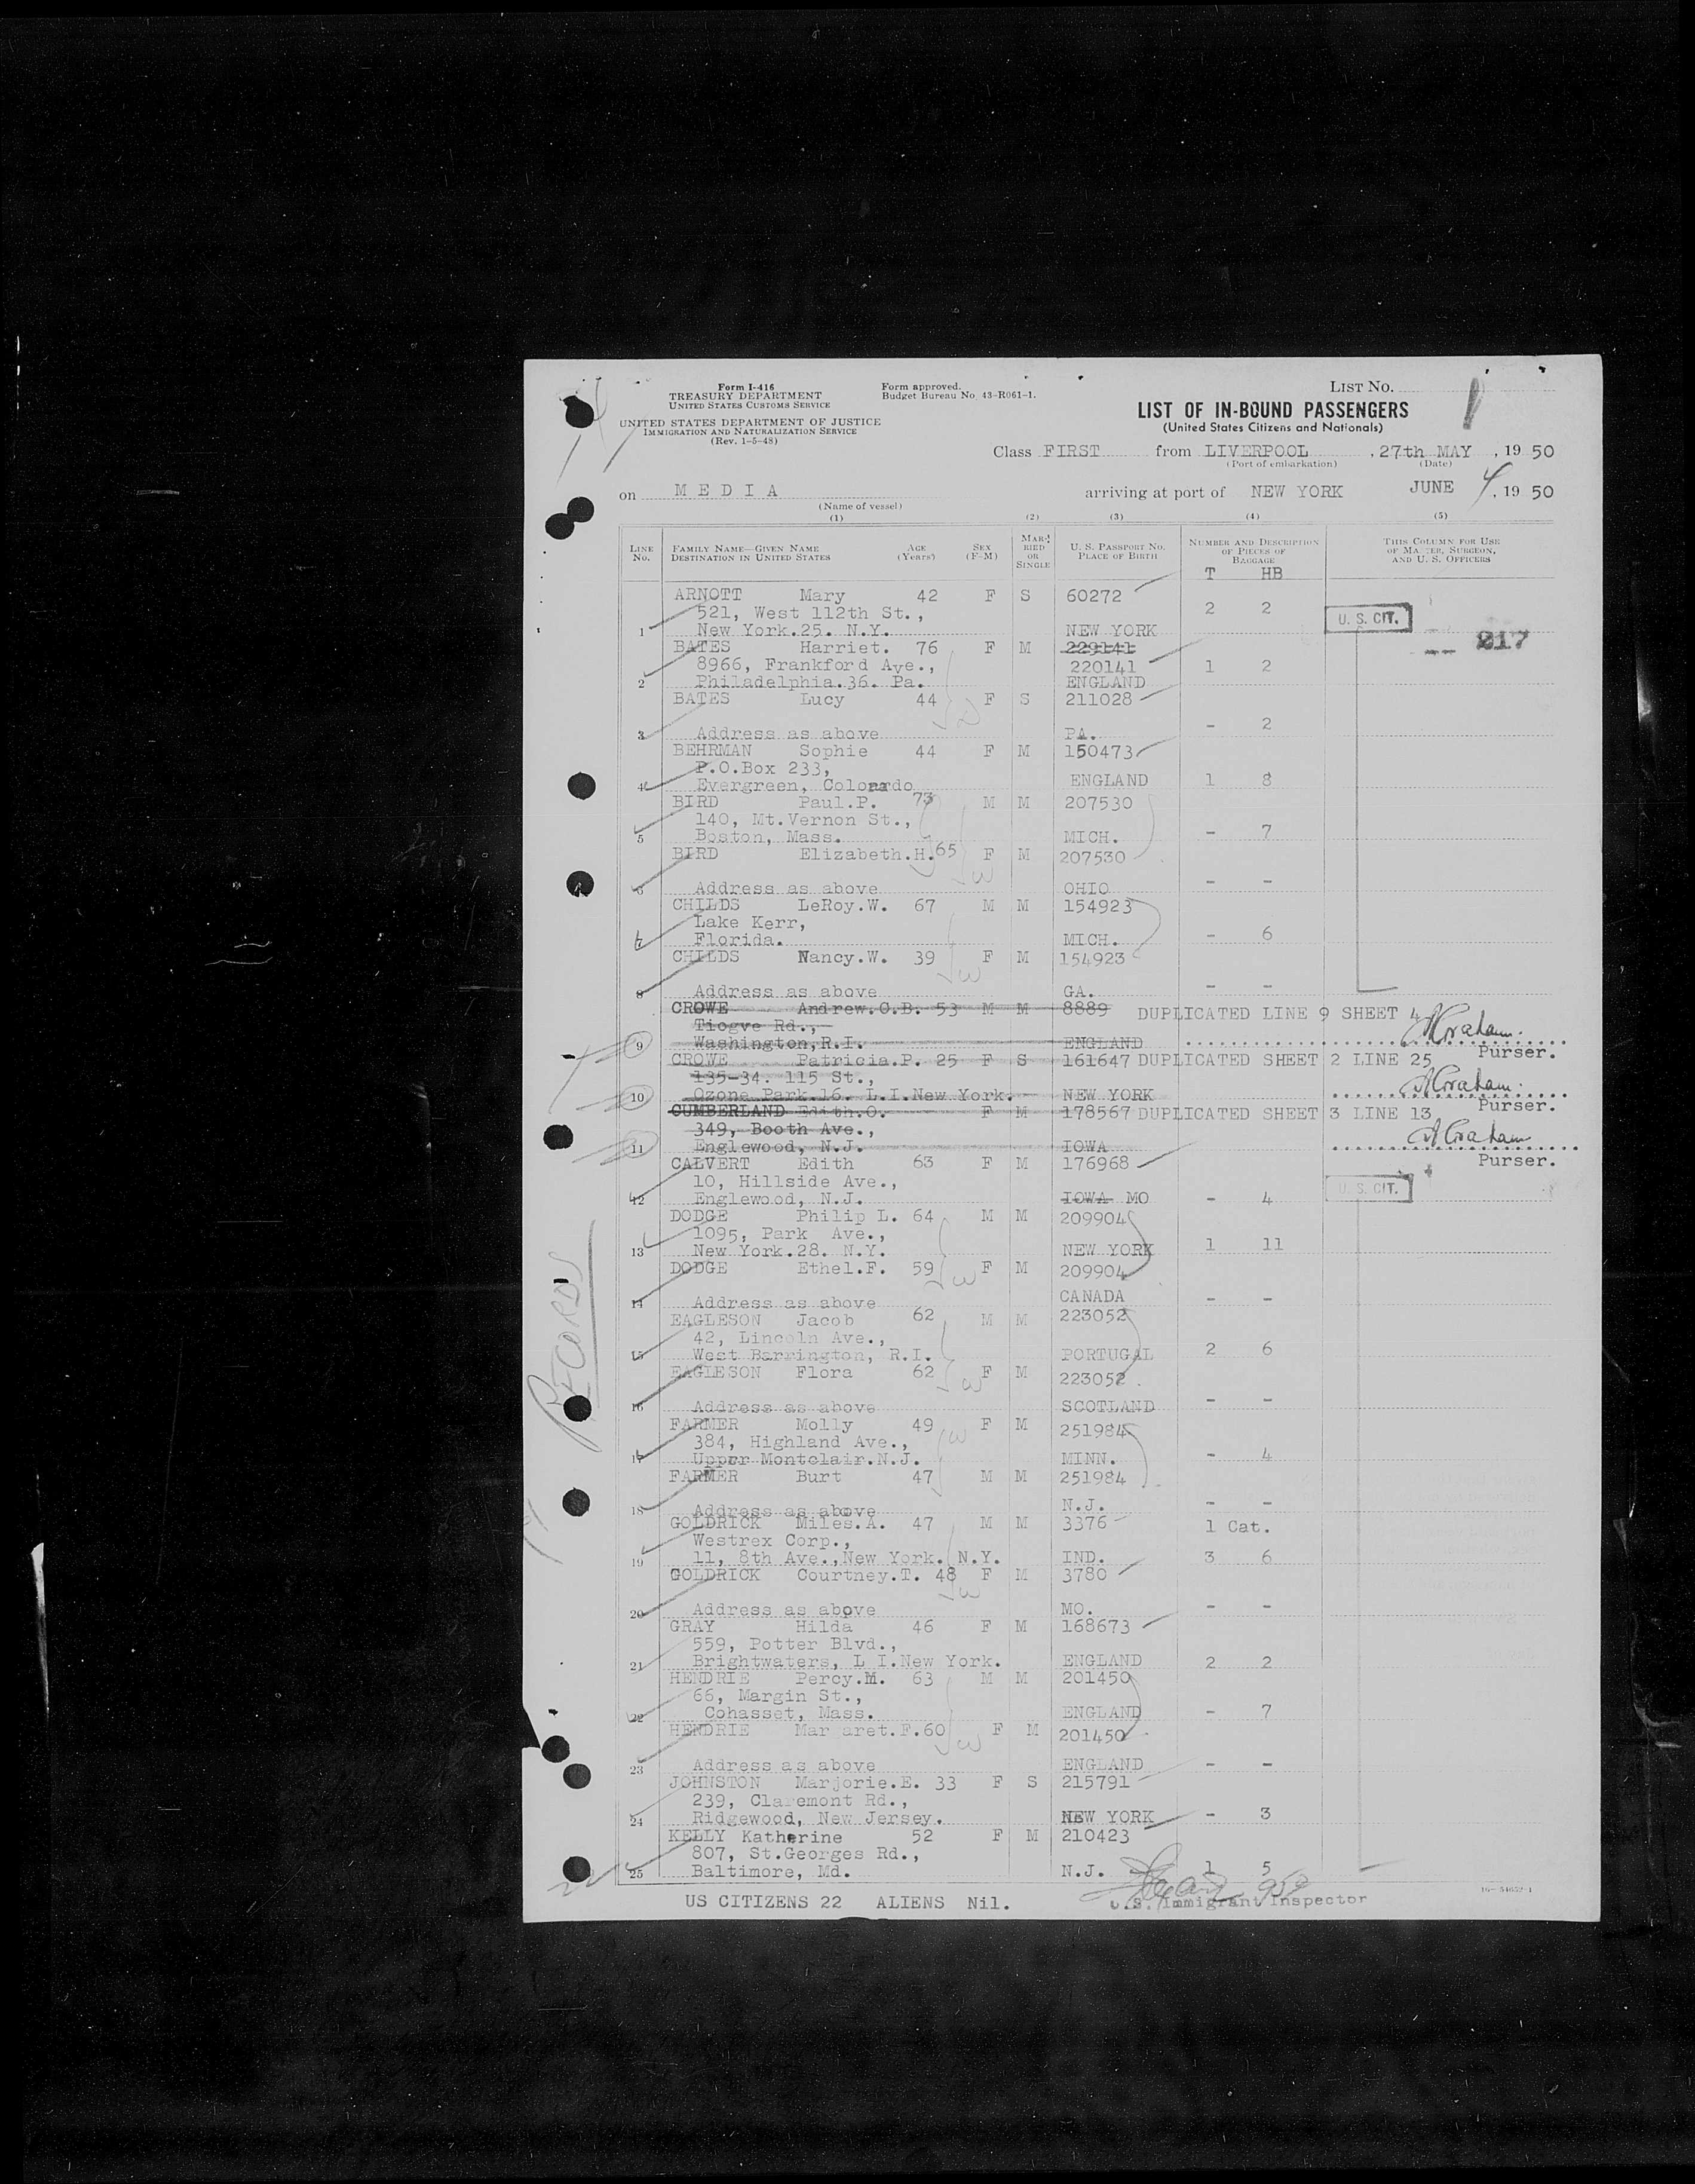 Form I-416
TREASURY DEPARTMENT
UNITED STATES CUSTOMS SERVICE
UNITED STATES DEPARTMENT OF JUSTICE
IMMIGRATION AND NATURALIZATION SERVICE
(Rev. 1-5-48)
Form approved.
Budget Bureau No. 43-R061-1.
LIST NO. 1
LIST OF IN-BOUND PASSENGERS
(United States Citizens and Nationals)
Class FIRST from LIVERPOOL , 27th MAY , 19 50
(Port of embarkation) (Date)
on M E D I A arriving at port of NEW YORK JUNE 4, 19 50
(Name of vessel)
(1) (2) (3) (4) (5)
LINE No. FAMILY NAME—GIVEN NAME DESTINATION IN UNITED STATES AGE (Years) SEX (F-M) MARRIED OR SINGLE U. S. PASSPORT NO. PLACE OF BIRTH NUMBER AND DESCRIPTION OF PIECES OF BAGGAGE THIS COLUMN FOR USE OF MASTER, SURGEON, AND U. S. OFFICERS
T HB
ARNOTT Mary 42 F S 60272
521, West 112th St., 2 2 U. S. CIT.
1 New York.25. N.Y. NEW YORK 217
BATES Harriet. 76 F M 229141
8966, Frankford Ave., 220141 1 2
2 Philadelphia.36. Pa. ENGLAND
BATES Lucy 44 F S 211028
- 2
3 Address as above PA.
BEHRMAN Sophie 44 F M 150473
P.O.Box 233,
4 Evergreen, Colorado ENGLAND 1 8
BIRD Paul.P. 73 M M 207530
140, Mt.Vernon St.,
5 Boston, Mass. MICH. - 7
BIRD Elizabeth.H.65 F M 207530
6 Address as above OHIO - -
CHILDS LeRoy.W. 67 M M 154923
Lake Kerr,
7 Florida. MICH. - 6
CHILDS Nancy.W. 39 F M 154923
8 Address as above GA. - -
CROWE Andrew.O.B. 53 M M 8889 DUPLICATED LINE 9 SHEET 4
Tiogve Rd.,
9 Washington,R.I. ENGLAND Purser.
CROWE Patricia.P. 25 F S 161647 DUPLICATED SHEET 2 LINE 25
135-34. 115 St.,
10 Ozone Park.16. L.I.New York. NEW YORK Purser.
CUMBERLAND Edith.O. F M 178567 DUPLICATED SHEET 3 LINE 13
349, Booth Ave.,
11 Englewood, N.J. IOWA Purser.
CALVERT Edith 63 F M 176968
10, Hillside Ave., U. S. CIT.
12 Englewood, N.J. IOWA MO - 4
DODGE Philip L. 64 M M 209904
1095, Park Ave.,
13 New York.28. N.Y. NEW YORK 1 11
DODGE Ethel.F. 59 F M 209904
14 Address as above CANADA - -
EAGLESON Jacob 62 M M 223052
42, Lincoln Ave.,
15 West Barrington, R.I. PORTUGAL 2 6
EAGLESON Flora 62 F M 223052
16 Address as above SCOTLAND - -
FARMER Molly 49 F M 251984
384, Highland Ave.,
17 Upper Montclair.N.J. MINN. - 4
FARMER Burt 47 M M 251984
18 Address as above N.J. - -
GOLDRICK Miles.A. 47 M M 3376 1 Cat.
Westrex Corp.,
19 11, 8th Ave.,New York. N.Y. IND. 3 6
GOLDRICK Courtney.T. 48 F M 3780
20 Address as above MO. - -
GRAY Hilda 46 F M 168673
559, Potter Blvd.,
21 Brightwaters, L I.New York. ENGLAND 2 2
HENDRIE Percy.M. 63 M M 201450
66, Margin St.,
22 Cohasset, Mass. ENGLAND - 7
HENDRIE Mar aret.F.60 F M 201450
23 Address as above ENGLAND - -
JOHNSTON Marjorie.E. 33 F S 215791
239, Claremont Rd.,
24 Ridgewood, New Jersey. NEW YORK - 3
KELLY Katherine 52 F M 210423
807, St.Georges Rd.,
25 Baltimore, Md. N.J. 1 5
US CITIZENS 22 ALIENS Nil. U.S. Immigrant Inspector
16—54652-1
RECORDS